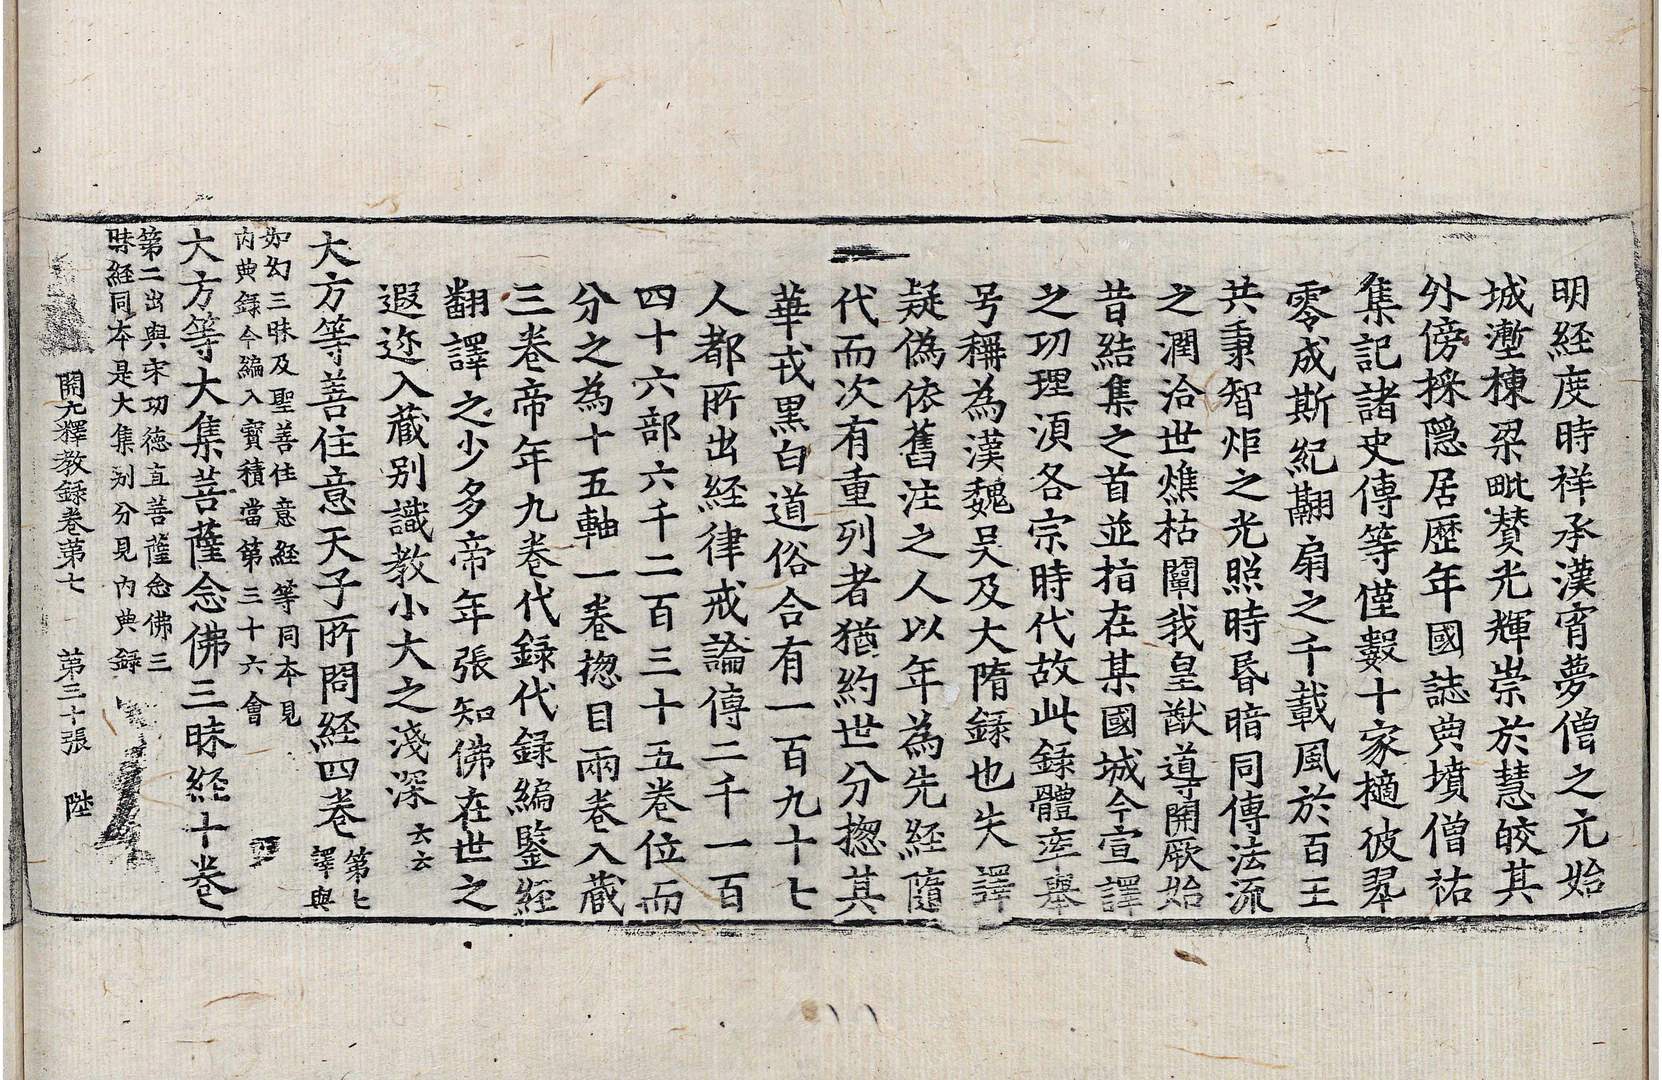 明經度時祥承漢宵夢僧之元始
城塹棟梁毗賛光輝崇於慧皎其
外傍採隱居歷年國誌典墳僧祐
集記諸史傳等僅數十家摘彼翠
零成斯紀翽扇之千載風於百王
共秉智炬之光照時昬暗同傳法流
之潤洽世燋枯闡我皇猷導開厥始
昔結集之首並指在某國城今宣譯
之功理湏各宗時代故此録體率舉
号稱為漢魏吴及大隋録也失譯
疑偽依舊注之人以年為先經隨
代而次有重列者猶約世分揔其
華戎黑白道俗合有一百九十七
人都所出經律戒論傳二千一百
四十六部六千二百三十五卷位而
分之為十五軸一卷揔目兩卷入藏
三卷帝年九卷代録代録編鑒經
翻譯之少多帝年張知佛在世之
遐迩入藏别識教小大之淺深 六六
大方等善住意天子所問經四卷 第七譯與
如幻三昧及聖善住意經等同本見
内典録今編入寳積當第三十六會
大方等大集菩薩念佛三昧經十卷
第二出與宋功徳直菩薩念佛三
昧經同本是大集别分見内典録
開元釋教録卷第七 第三十張 陞